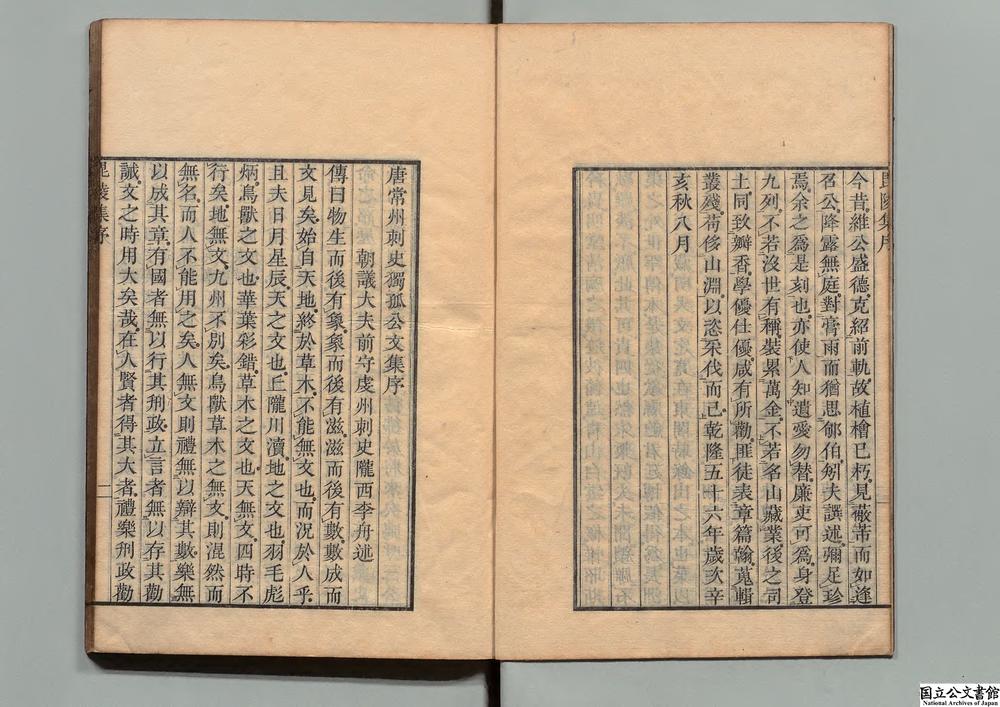 毘陵集序
今昔維公盛德克紹前軌故植檜已朽見蔽芾而如逢
召公降露無庭對膏雨而猶思郇伯矧夫譔述彌足珍
焉余之爲是刻也亦使人知遺愛勿替廉吏可爲身登
九列不若沒世有稱裝累萬金不若名山藏業後之司
土同致瓣香學優仕優咸有所勸匪徒表章篇翰蒐輯
叢殘苟侈山淵以恣采伐而已乾隆五十六年歲次辛
亥秋八月
唐常州刺史獨孤公文集序
朝議大夫前守虔州刺史隴西李舟述
傳曰物生而後有象象而後有滋滋而後有數數成而
文見矣始自天地終於草木不能無文也而況於人乎
且夫日月星辰天之文也丘隴川瀆地之文也羽毛彪
炳鳥獸之文也華葉彩錯草木之文也天無文四時不
行矣地無文九州不別矣鳥獸草木之無文則混然而
無名而人不能用之矣人無文則禮無以辯其數樂無
以成其章有國者無以行其刑政立言者無以存其勸
誡文之時用大矣哉在人賢者得其大者禮樂刑政勸
毘陵集序
一
国立公文書館
National Archives of Japan